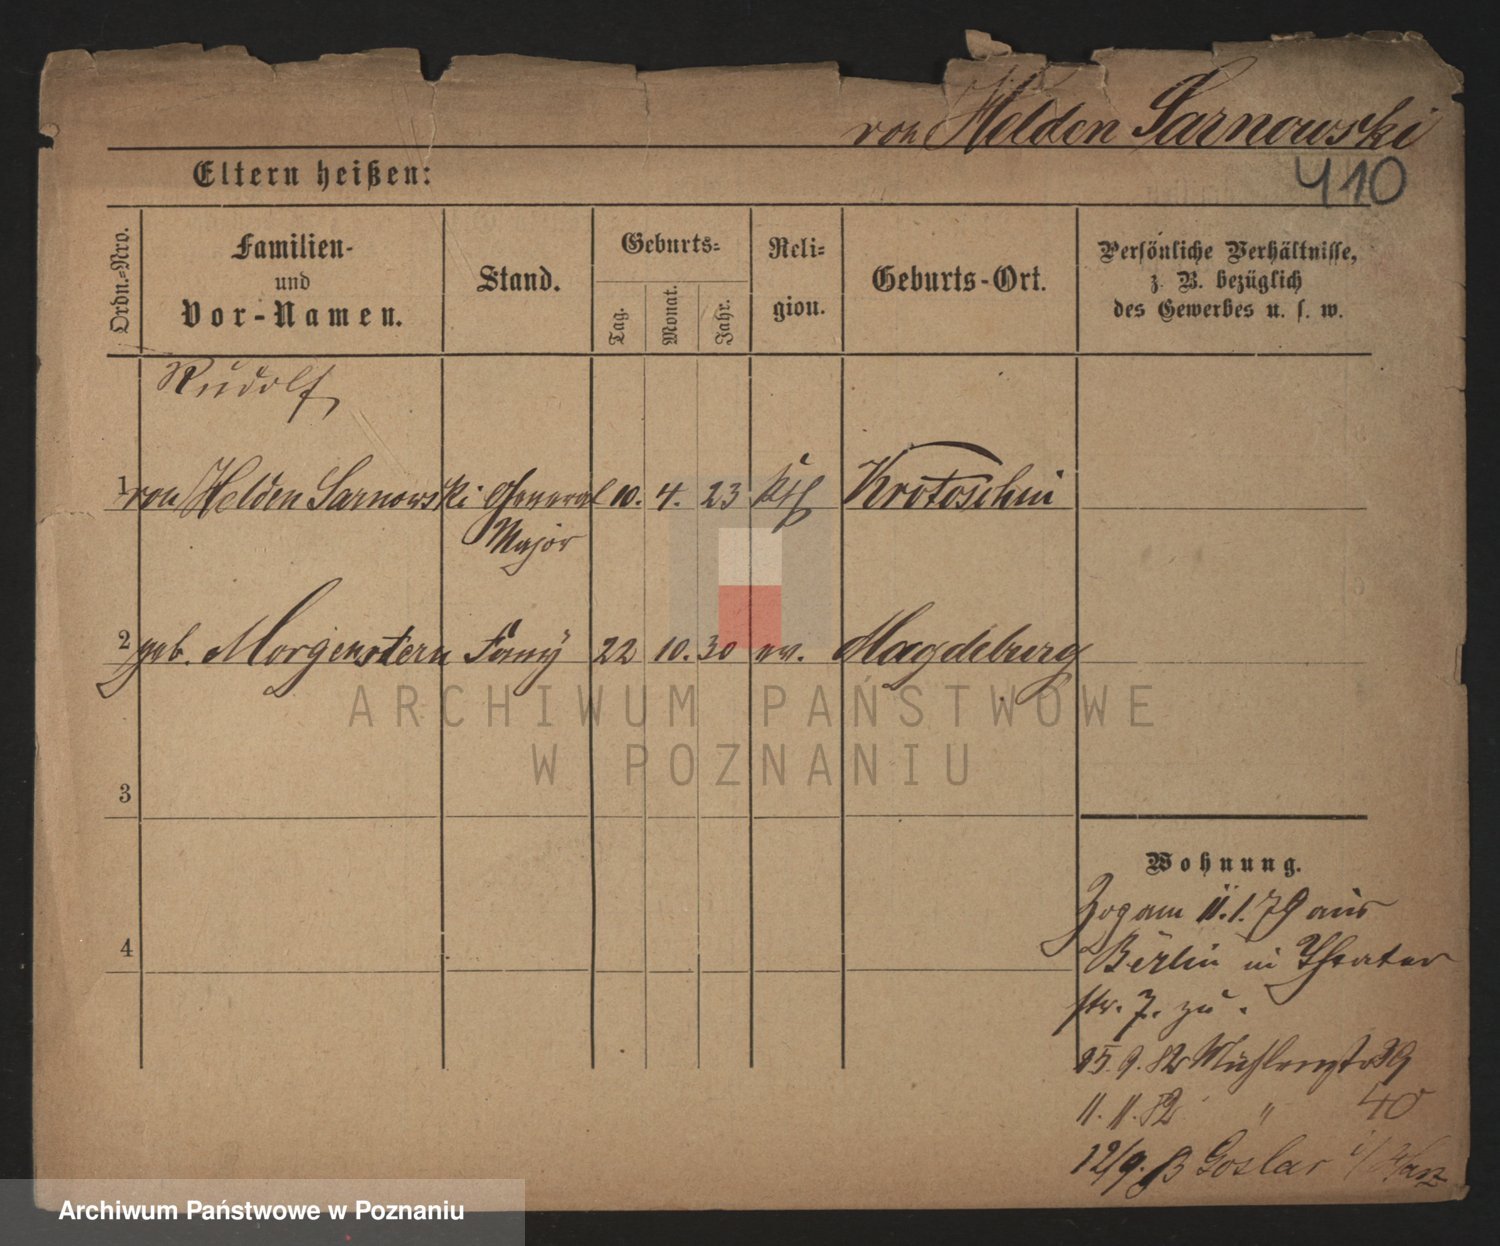 von Helden Sarnowski
410
Eltern heißen:
Ordn.-Nro.
Familien-
und
Vor-Namen.
Stand.
Geburts-
Tag.
Monat.
Jahr.
Reli-
gion.
Geburts-Ort.
Persönliche Verhältnisse,
z. B. bezüglich
des Gewerbes u. s. w.
Rudolf
1 von Helden Sarnowski General 10. 4. 23 Kth Krotoschin
Major
2 geb. Morgenstern Fanny 22 10. 30 ev. Magdeburg
ARCHIWUM PAŃSTWOWE
W POZNANIU
3
4
Wohnung.
Zog am 11.1.79 aus
Berlin in Theater
str. 7. zu.
25.9.82 Mühlenstr 39
11.11.82 " 40
12/9. Goslar i/Harz
Archiwum Państwowe w Poznaniu